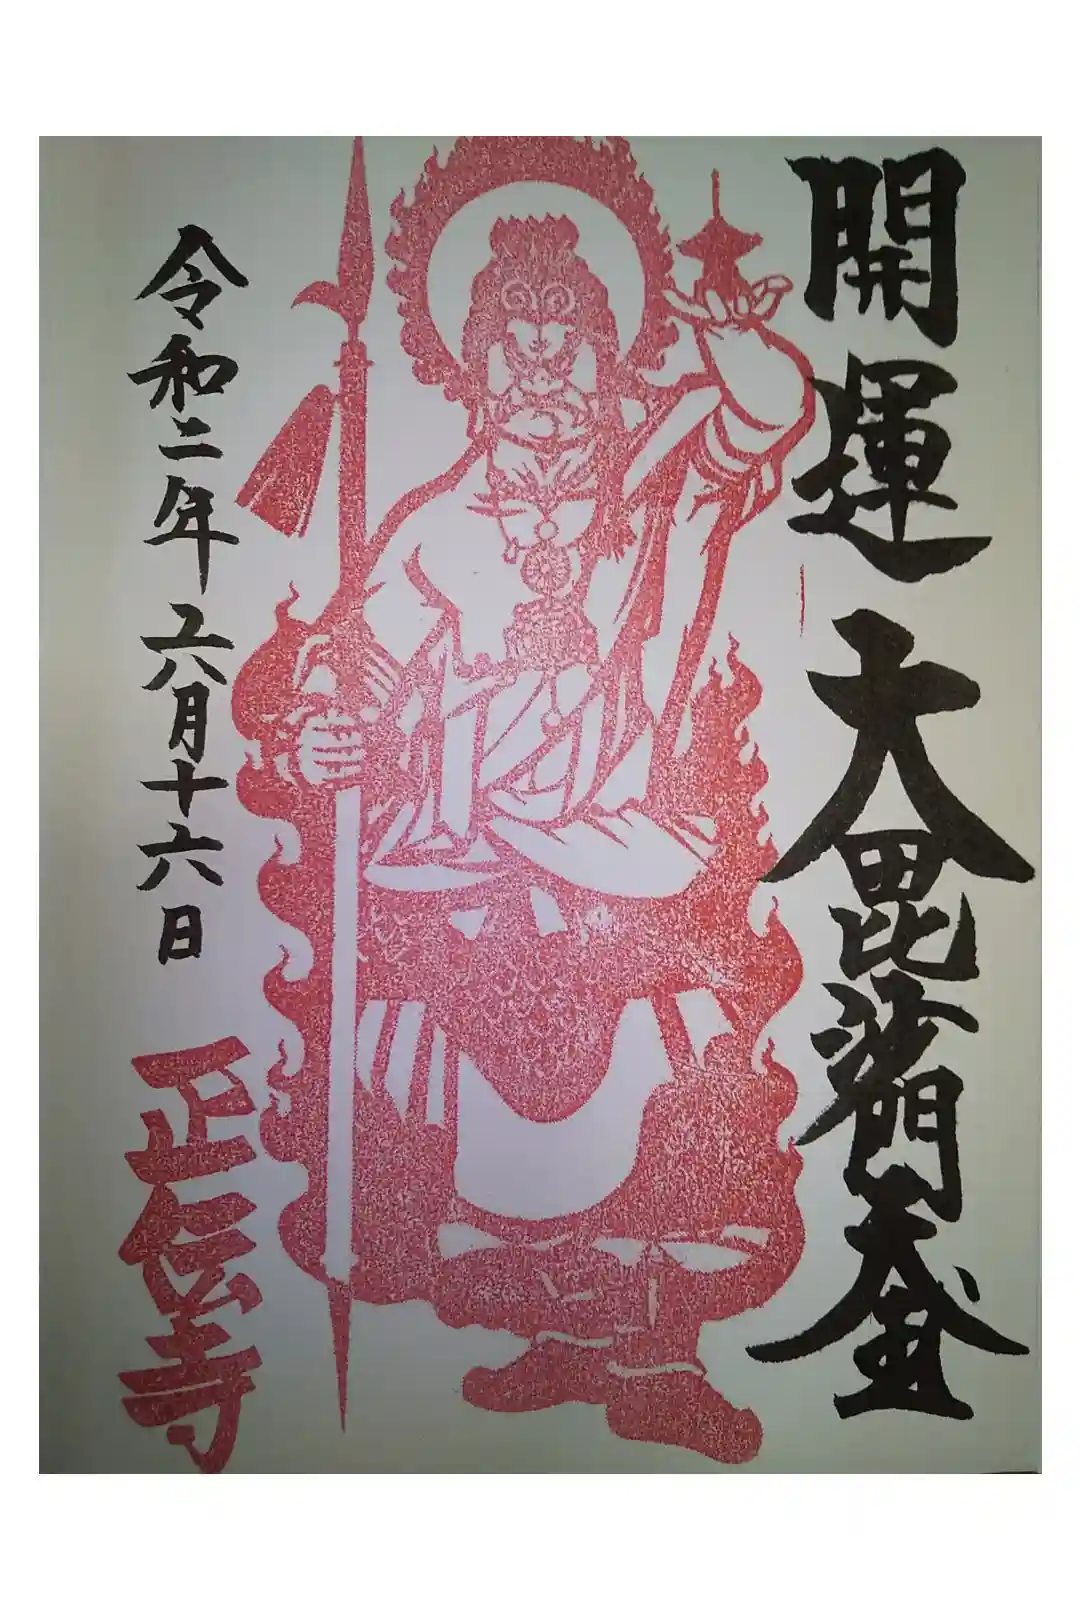 開運大毘沙門天尊
令和二年六月十六日
正伝寺